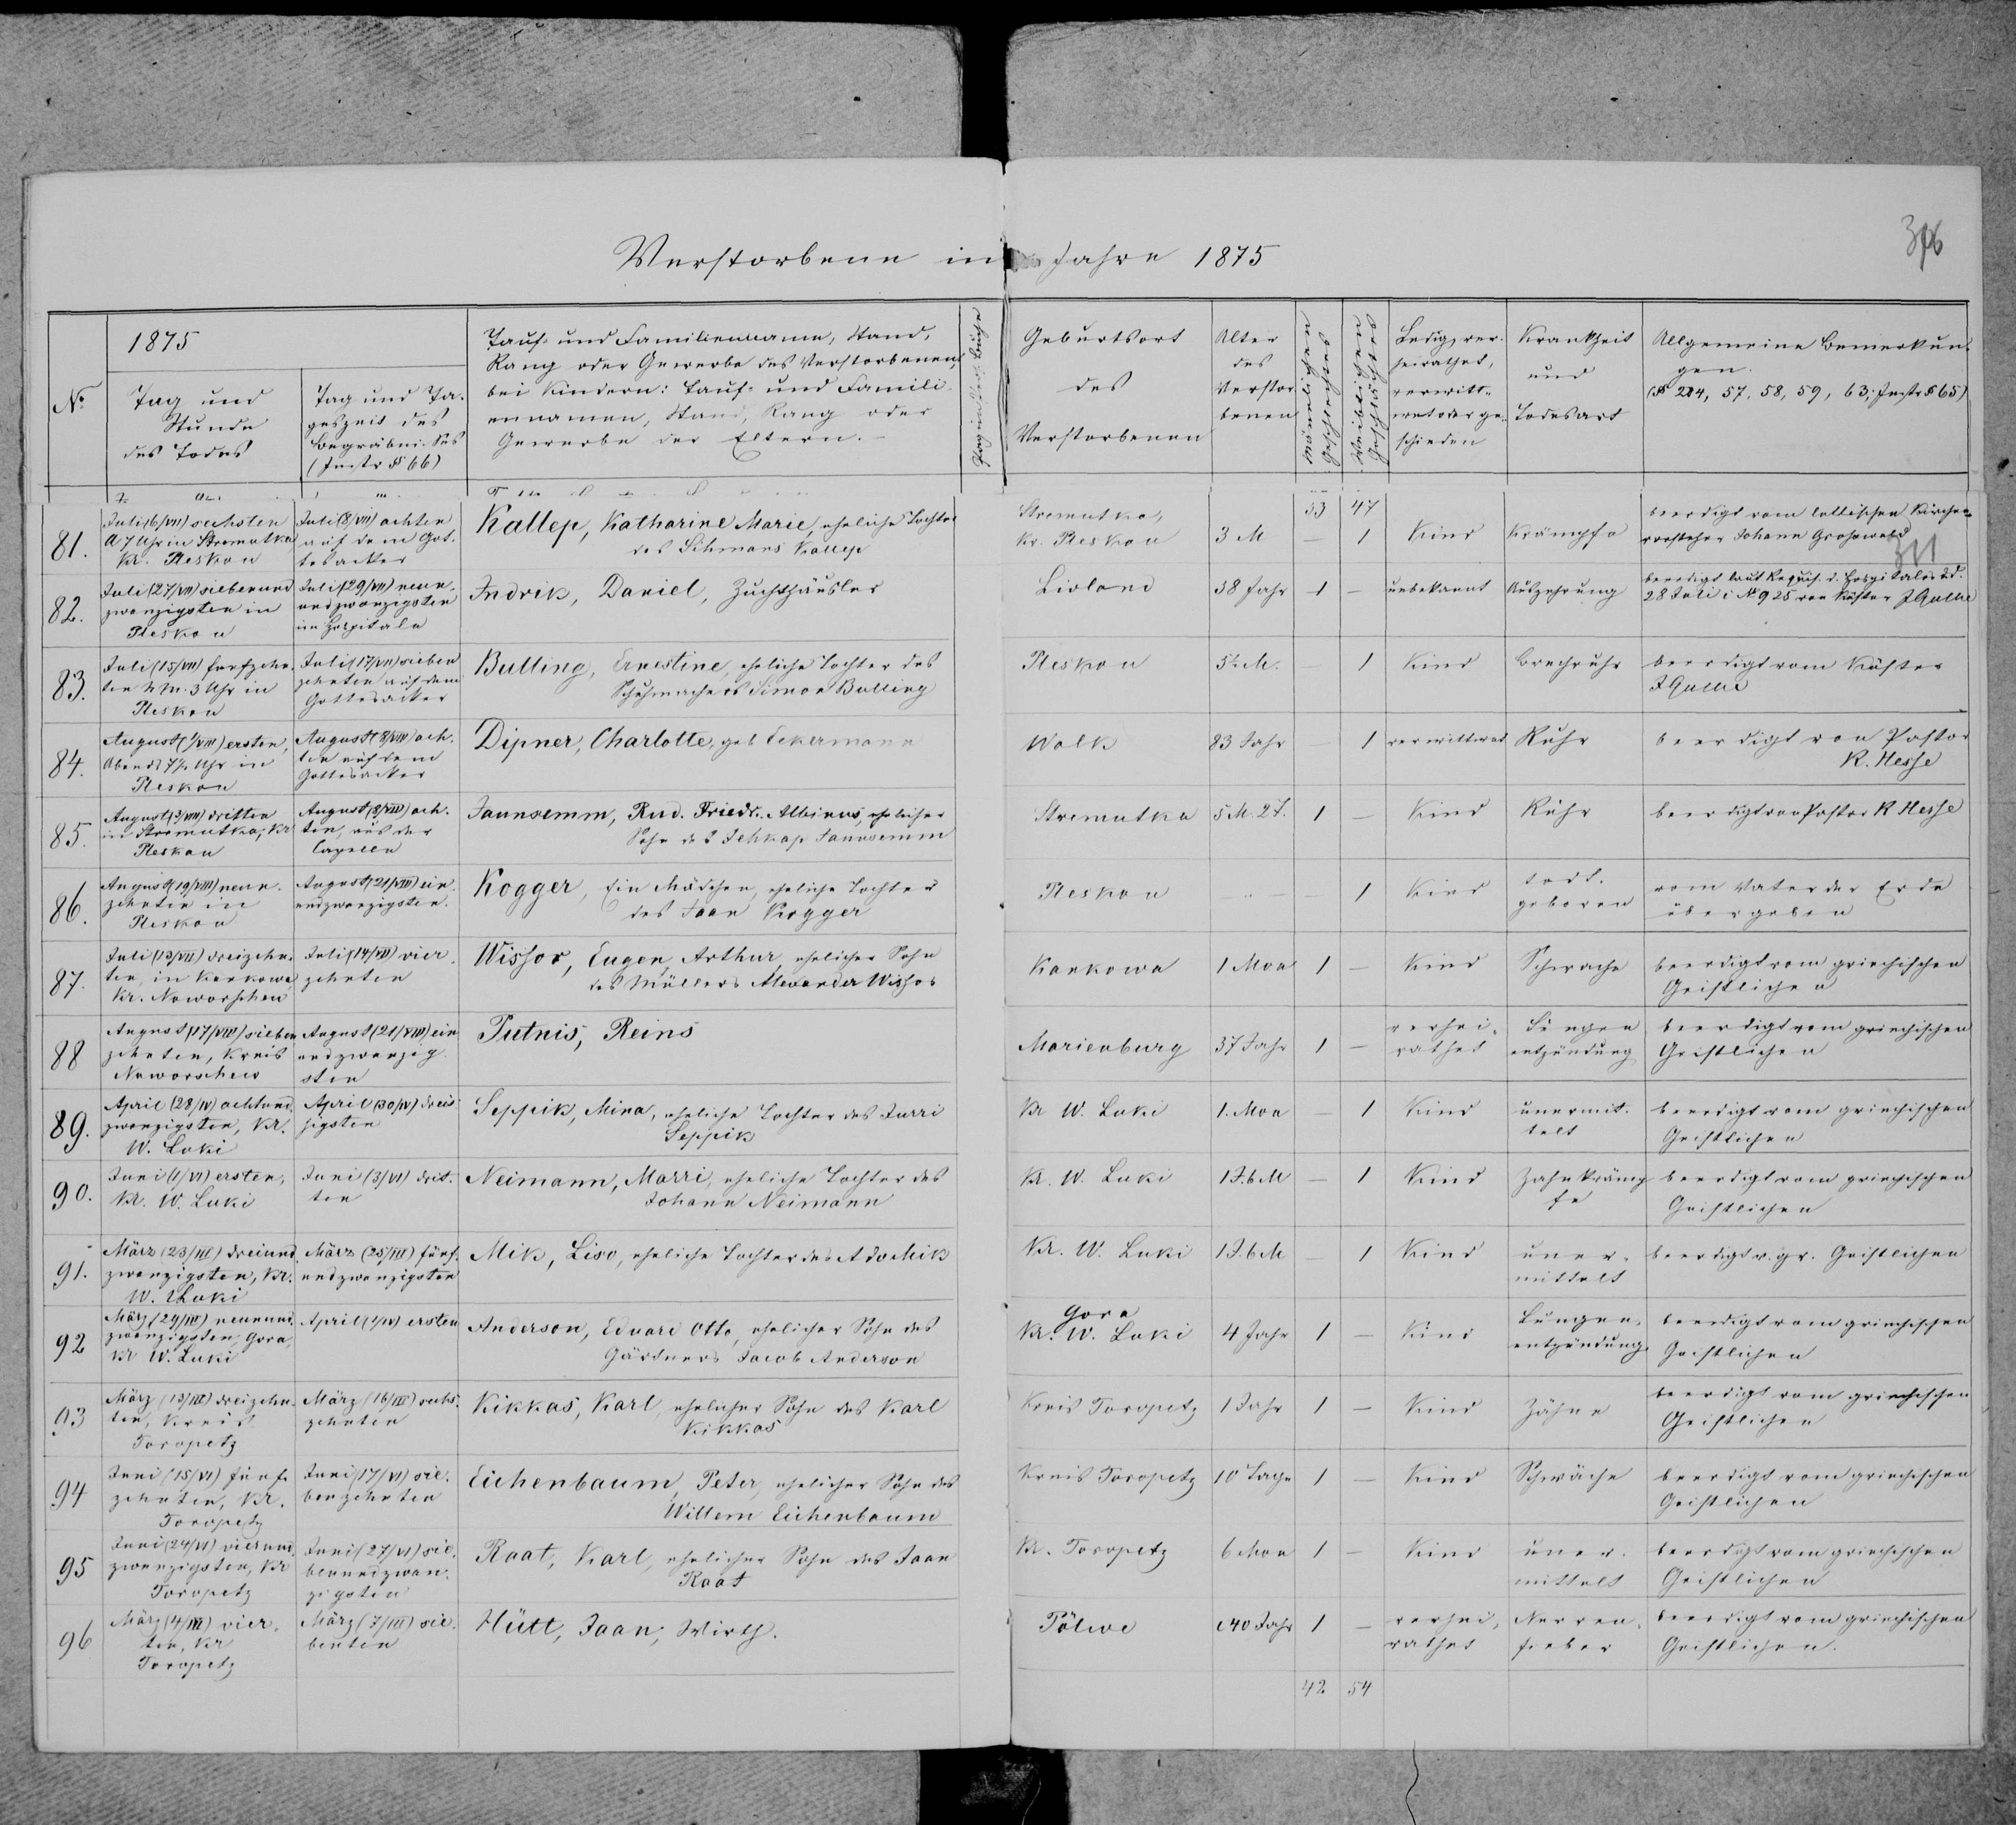 376
Verstorbene im Jahre 1875
No
1875
Tag und
Stunde
des Todes
Tag und Ta-
geszeit des
Begräbnisses
(Instr § 66)
Tauf- und Familienname, Stand,
Rang oder Gewerbe des Verstorbenen,
bei Kindern: Tauf- und Famili-
ennamen, Stand, Rang oder
Gewerbe der Eltern.
Geburtsort
des
Verstorbenen
Alter
des
Verstor-
benen
Männlichen
Geschlechtes
Weiblichen
Geschlechtes
Ledig, ver-
heirathet,
verwitt-
wet oder ge-
schieden
Krankheit
und
Todesart
Allgemeine Bemerkun-
gen.
(§ 214, 57, 58, 59, 63; Instr § 65)
33 47
81.
Juli (6/VII) sechsten
A 7 Uhr in Stremutka
Kr. Pleskau
Juli (8/VII) achten
auf dem Got-
tesacker
Kallep, Katharine Marie, eheliche Tochter
des Sihmans Kallep
Stremutka,
Kr. Pleskau
3 M
— 1
Kind
Krämpfe
beerdigt vom lettischen Kirchen-
vorsteher Johann Grohswald
311
82.
Juli (27/VII) siebenund
zwanzigsten in
Pleskau
Juli (29/VII) neun-
undzwanzigsten
im Hospitale
Indrik, Daniel, Zuchthäusler
Livland
38 Jahr
1 —
unbekannt
Auszehrung
beerdigt laut Requis. d. Hospitales d.d.
28 Juli No 925 von Küster
83.
Juli (15/VII) funfzehn-
ten N. M. 3 Uhr in
Pleskau
Juli (17/VII) sieben
zehnten auf dem
Gottesacker
Bulling, Ernestine, eheliche Tochter des
Schuhmachers Simon Bulling
Pleskau
5½ M.
— 1
Kind
Brechruhr
beerdigt vom Küster
84.
August (1/VIII) ersten,
Abends 7½ Uhr in
Pleskau
August (8/VIII) ach-
ten auf dem
Gottesacker
Dipner, Charlotte, geb Eckermann
Walk
83 Jahr
— 1
verwittwet
Ruhr
beerdigt von Pastor
K. Hesse
85.
August (3/VIII) dritten
in Stremutka, Kr
Pleskau
August (8/VIII) ach-
ten, aus der
Capelle
Jaunsemm, Rud. Friedr. Albinus, ehelicher
Sohn des Jehkap Jaunsemm
Stremutka
5 M. 2 T.
1 —
Kind
Ruhr
beerdigt von Pastor K Hesse
86.
August (19/VIII) neun-
zehnten in
Pleskau
August (21/VIII) ein
undzwanzigsten.
Kogger, Ein Mädchen, eheliche Tochter
des Jaan Kogger
Pleskau
— 1
Kind
todt-
geboren
vom Vater der Erde
übergeben
87.
Juli (13/VII) dreizehn-
ten, in Karkowa
Kr. Noworschew
Juli (14/VII) vier-
zehnten
Wissor, Eugen, Arthur, ehelicher Sohn
des Müllers Alexander Wissor
Karkowa
1 Mon
1 —
Kind
Schwache
beerdigt vom griechischen
Geistlichen
88
August (17/VIII) sieben
zehnten, Kreis
Noworschew
August (21/VIII) ein
undzwanzig
sten
Putnis, Reins
Marienburg
37 Jahr
1 —
verhei-
rathet
Lungen
entzündung
beerdigt vom griechischen
Geistlichen
89.
April (28/IV) achtund-
zwanzigsten, Kr.
W. Luki
April (30/IV) dreis
sigsten
Seppik, Mina, eheliche Tochter des Jurri
Seppik
Kr W. Luki
1. Mon
— 1
Kind
unermit-
telt
beerdigt vom griechischen
Geistlichen
90.
Juni (1/VI) ersten,
Kr. W. Luki
Juni (3/VI) drit-
ten
Neimann, Marri, eheliche Tochter des
Johann Neimann
Kr. W. Luki
1 J. 6 M
— 1
Kind
Zahnkrämp
fe
beerdigt vom griechischen
Geistlichen
91.
März (23/III) dreiund
zwanzigsten, Kr.
W. Luki
März (25/III) fünf-
undzwanzigsten
Mik, Liso, eheliche Tochter des Ado Mik
Kr. W. Luki
1 J. 6 M
— 1
Kind
uner-
mittelt
beerdigt v. gr. Geistlichen
92
März (29/III) neunund
zwanzigsten, Gora,
Kr W. Luki
April (1/IV) ersten
Anderson, Eduard Otto, ehelicher Sohn des
Gärtners Jacob Anderson
Gora
Kr. W. Luki
4 Jahr
1 —
Kind
Lungen-
entzündung
beerdigt vom griechischen
Geistlichen
93
März (13/III) dreizehn-
ten, Kreis
Toropetz
März (16/III) sechs-
zehnten
Kikkas, Karl, ehelicher Sohn des Karl
Kikkas
Kreis Toropetz
1 Jahr
1 —
Kind
Zähne
beerdigt vom griechischen
Geistlichen
94
Juni (15/VI) funf-
zehnten, Kr.
Toropetz
Juni (17/VI) sie-
benzehnten
Eichenbaum, Peter, ehelicher Sohn des
Willem Eichenbaum
Kreis Toropetz
10 Tage
1 —
Kind
Schwäche
beerdigt vom griechischen
Geistlichen
95
Juni (24/VI) vierund
zwanzigsten, Kr
Toropetz
Juni (27/VI) sie-
benundzwan-
zigsten
Raat, Karl, ehelicher Sohn des Jaan
Raat
Kr. Toropetz
6 Mon
1 —
Kind
uner-
mittelt
beerdigt vom griechischen
Geistlichen
96
März (4/III) vier-
ten, Kr
Toropetz
März (7/III) sie-
benten
Hütt, Jaan, Wirth.
Pölwe
c40 Jahr
1 —
verhei-
rathet
Nerven-
fieber
beerdigt vom griechischen
Geistlichen.
42 54